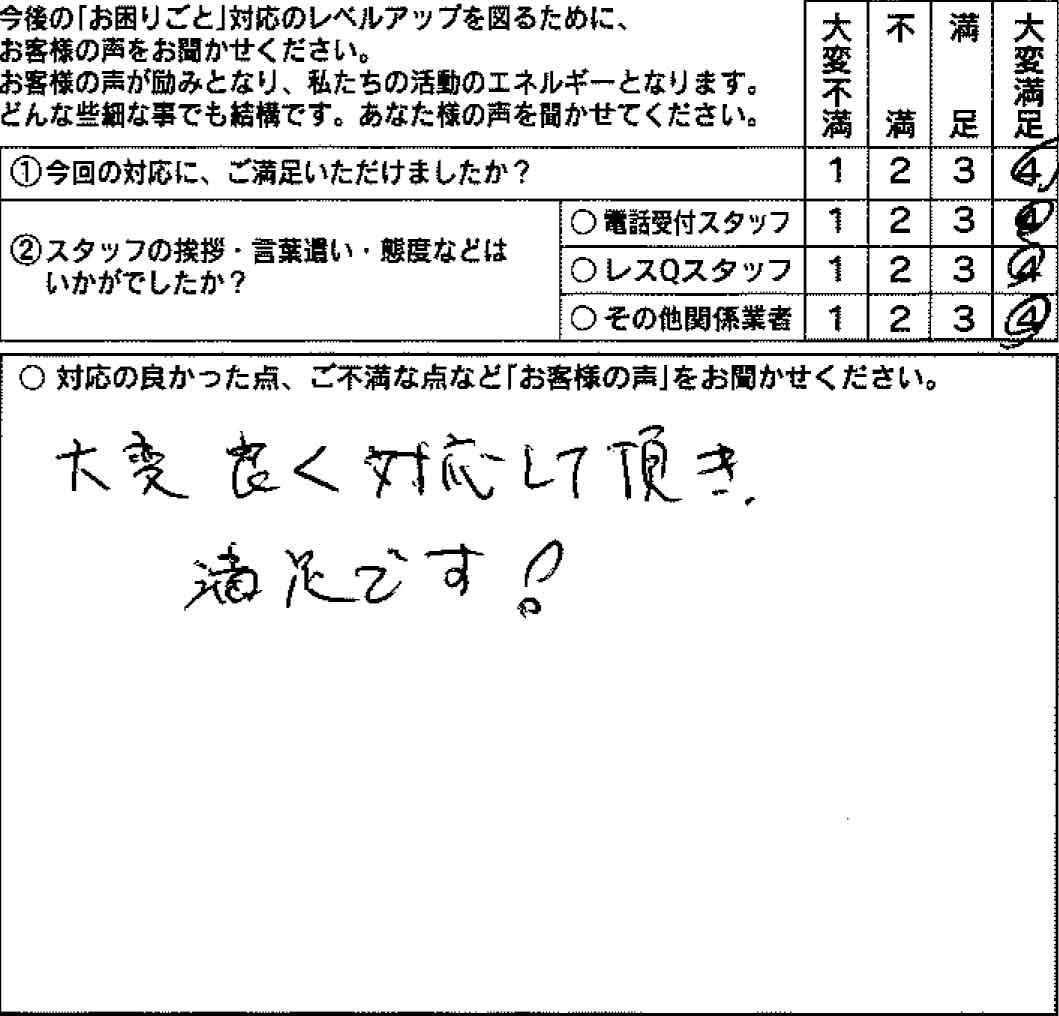 今後の「お困りごと」対応のレベルアップを図るために、
お客様の声をお聞かせください。
お客様の声が励みとなり、私たちの活動のエネルギーとなります。
どんな些細な事でも結構です。あなた様の声を聞かせてください。
大変不満 不満 満足 大変満足
①今回の対応に、ご満足いただけましたか？ 1 2 3 4
②スタッフの挨拶・言葉遣い・態度などは
いかがでしたか？
○ 電話受付スタッフ 1 2 3 4
○ レスQスタッフ 1 2 3 4
○ その他関係業者 1 2 3 4
○ 対応の良かった点、ご不満な点など「お客様の声」をお聞かせください。
大変良く対応して頂き、
満足です！